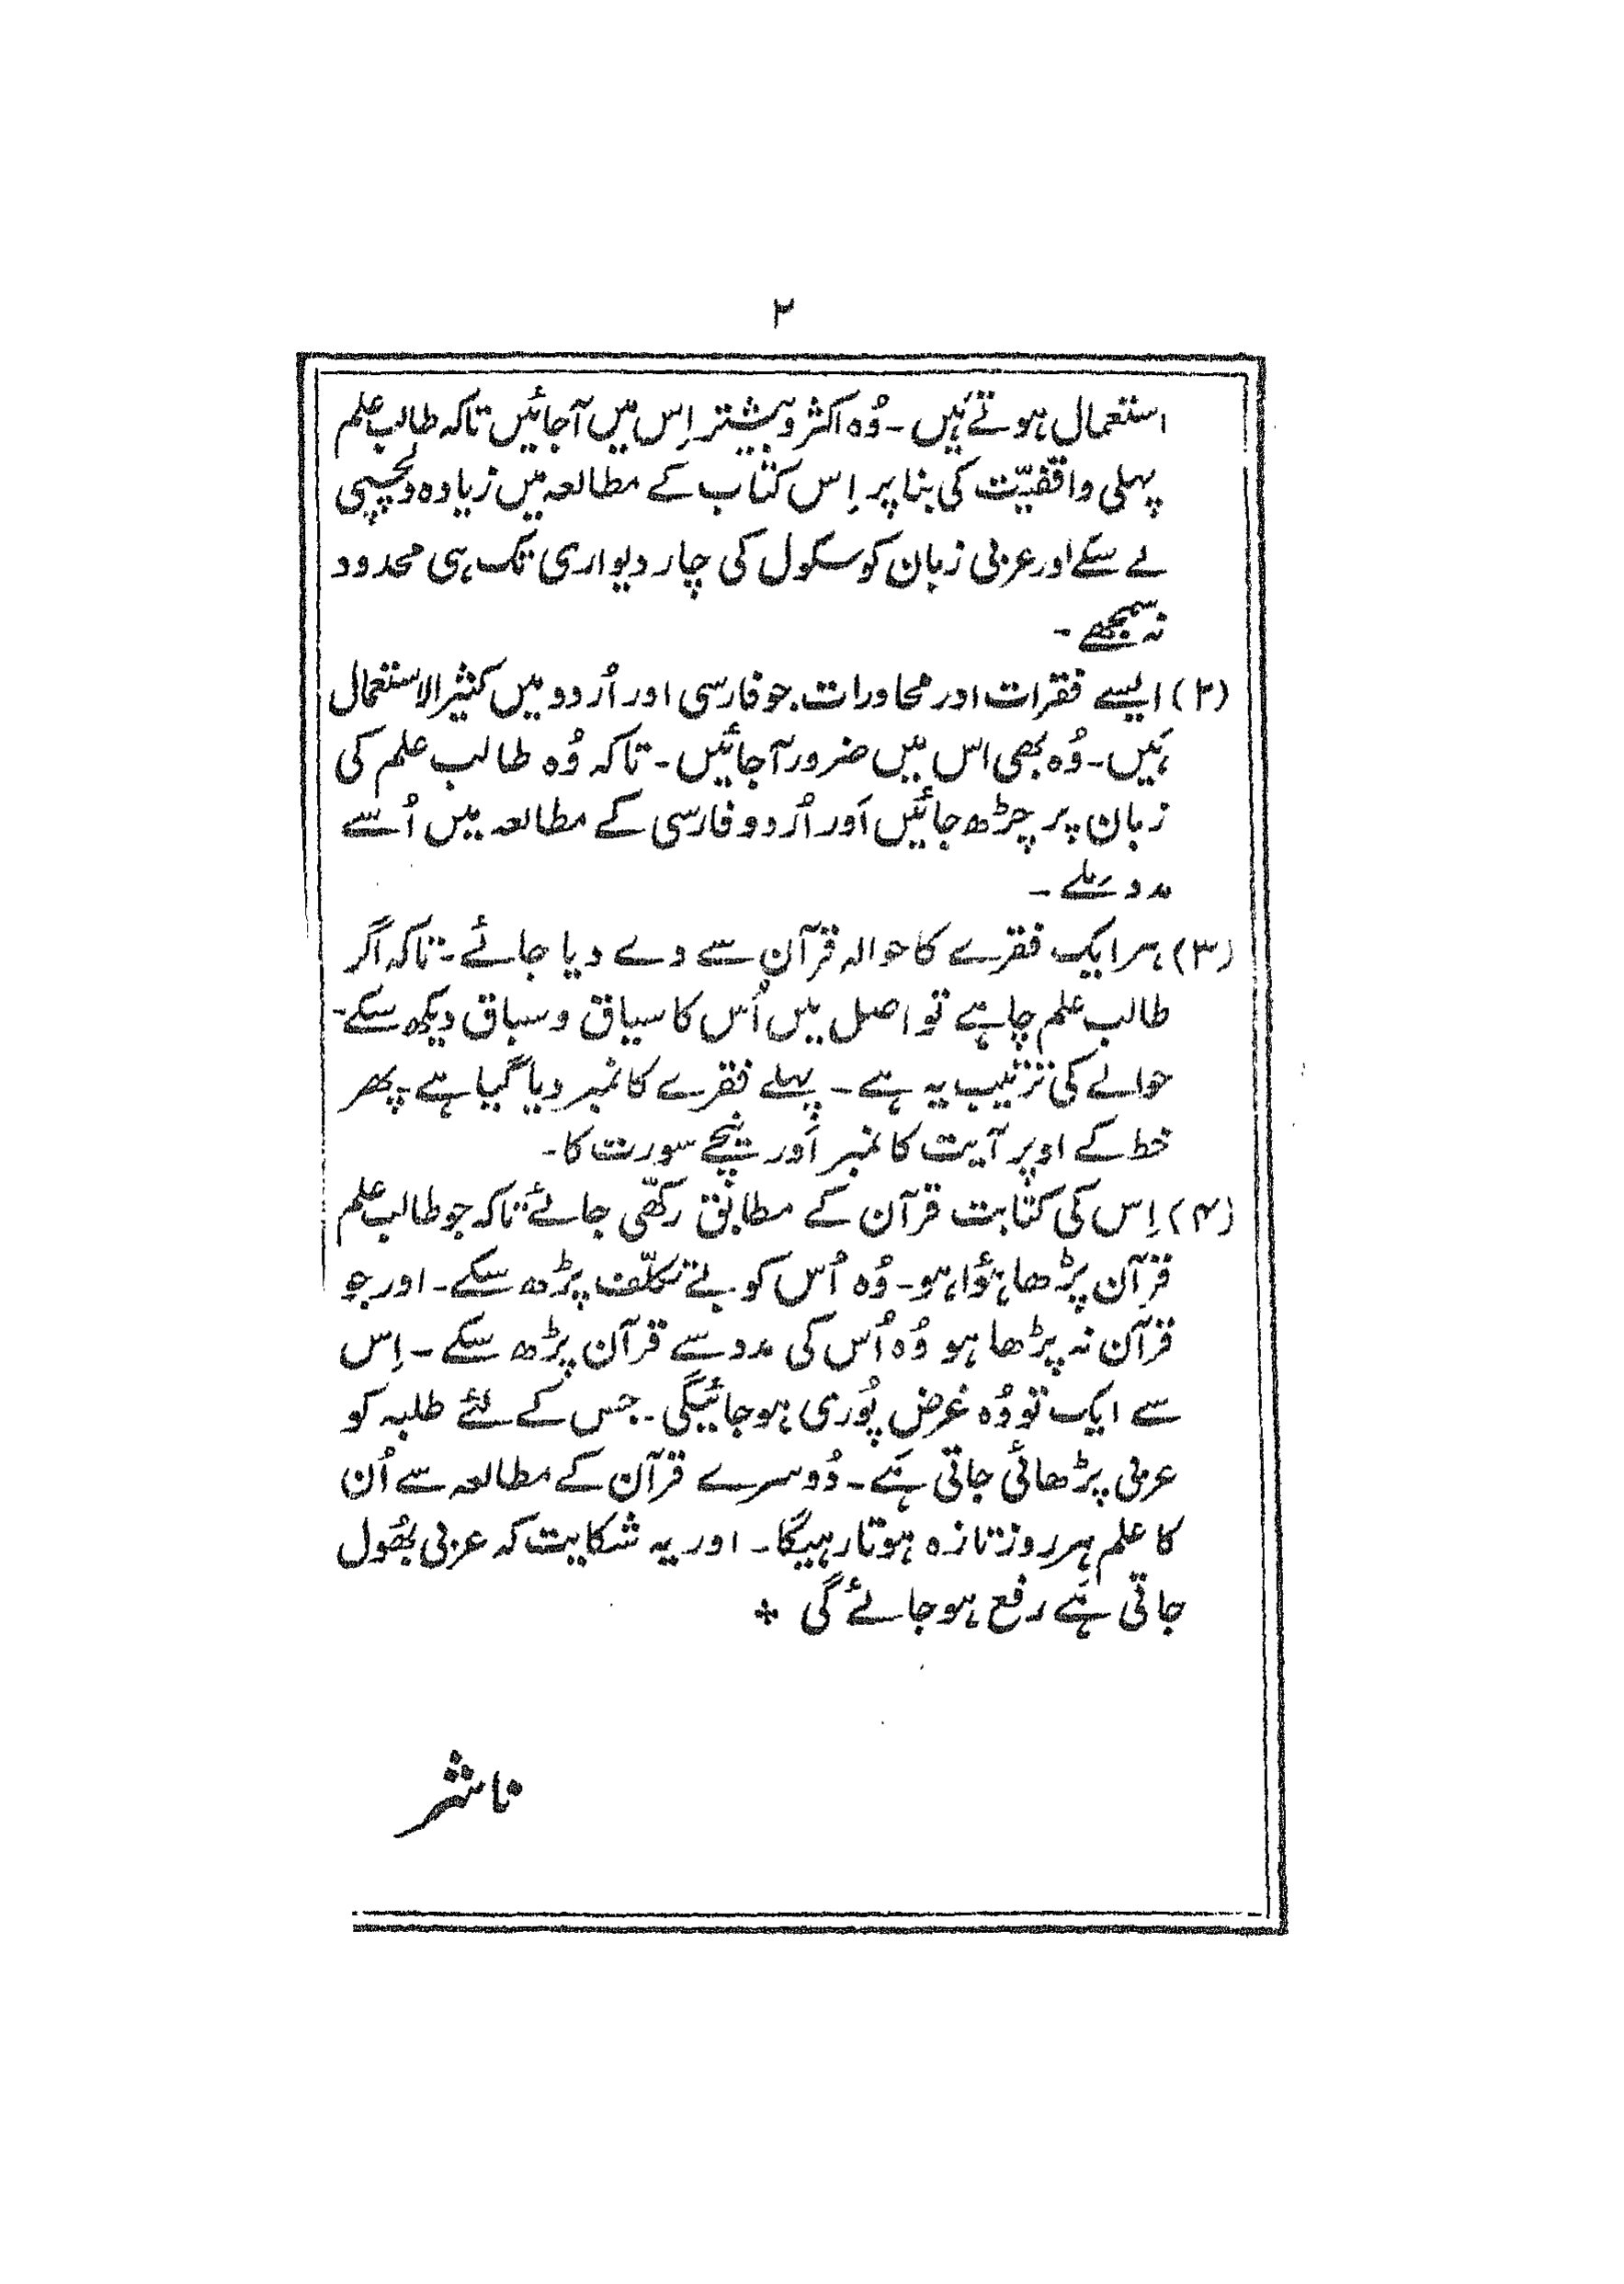 ۲
استعمال ہوتے ہَیں۔ وُہ اکثر و بیشتر اِس میں آجائیں تاکہ طالب علم
پہلی واقفیّت کی بنا پر اِس کتاب کے مطالعہ میں زیادہ دلچسپی
لے سکے اور عربی زبان کو سکول کی چار دیواری تک ہی محدود
نہ سمجھے۔
(۲) ایسے فقرات اور محاورات جو فارسی اور اُردو میں کثیر الاستعمال
ہَیں۔ وُہ بھی اس میں ضرور آجائیں۔ تاکہ وُہ طالب علم کی
زبان پر چڑھ جائیں اَور اُردو فارسی کے مطالعہ میں اُسے
مدد مِلے۔
(۳) ہر ایک فقرے کا حوالہ قرآن سے دے دیا جائے۔ تاکہ اگر
طالب علم چاہے تو اصل میں اُس کا سیاق و سباق دیکھ سکے۔
حوالے کی ترتیب یہ ہے۔ پہلے فقرے کا نمبر دیا گیا ہے۔ پھر
خط کے اوپر آیت کا نمبر اَور نیچے سورت کا۔
(۴) اِس کی کتابت قرآن کے مطابق رکھّی جائے۔ تاکہ جو طالب علم
قرآن پڑھا ہؤا ہو۔ وُہ اُس کو بے تکلّف پڑھ سکے۔ اور جو
قرآن نہ پڑھا ہو وُہ اُس کی مدد سے قرآن پڑھ سکے۔ اِس
سے ایک تو وُہ غرض پُوری ہو جائیگی۔ جس کے لئے طلبہ کو
عربی پڑھائی جاتی ہَے۔ دُوسرے قرآن کے مطالعہ سے اُن
کا علم ہر روز تازہ ہوتا رہیگا۔ اور یہ شکایت کہ عربی بھُول
جاتی ہَے رفع ہو جائے گی ٭
ناشر